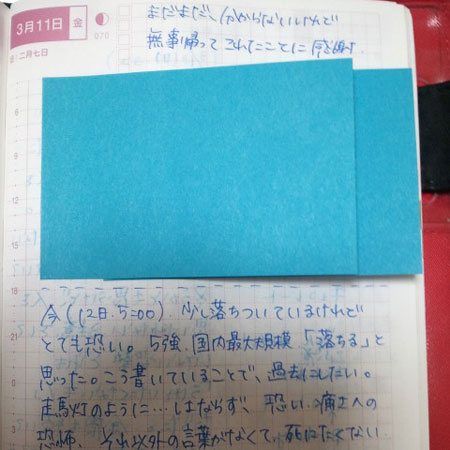 3月11日 金
070
旧二月七日
まだまだ、分からないけれど
無事帰ってこれたことに感謝
7
12
15
18
今(12日.5=00). 少し落ちついているけれど
とても恐い。5強. 国内最大規模 「落ちる」と
21
思った。こう書いていることで、過去にしたい。
走馬灯のように…はならず、恐い.痛さへの
恐怖、それ以外の言葉がなくて、死にたくない